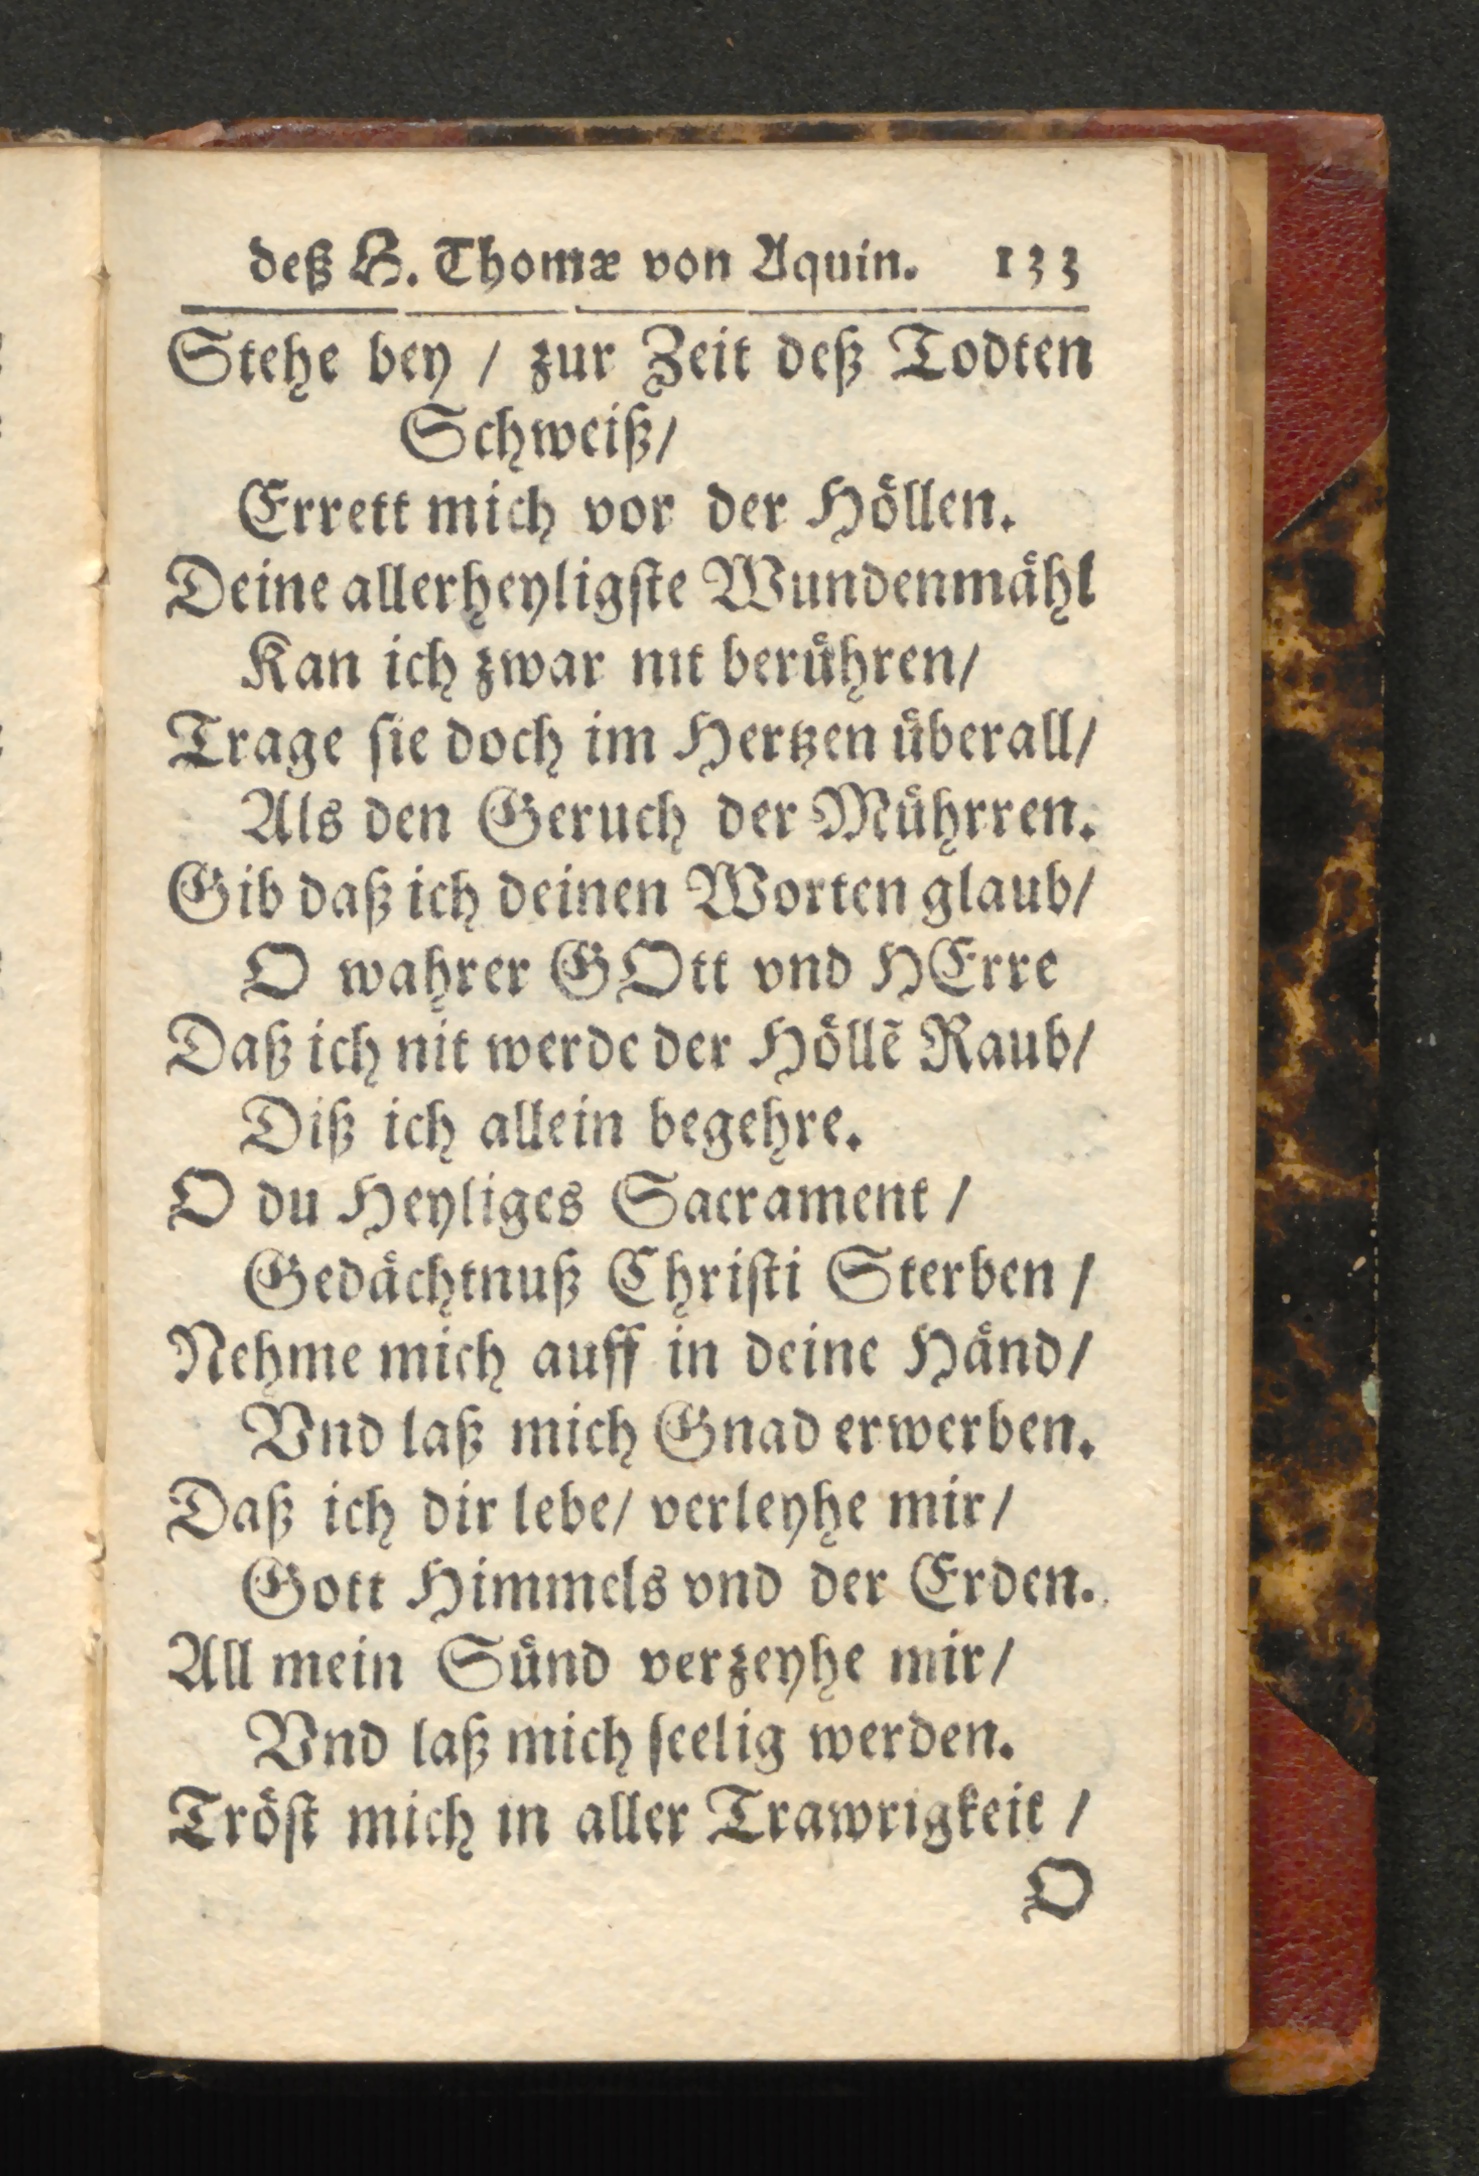 deß H. Thomæ von Aquin. 133
Stehe bey / zur Zeit deß Todten
Schweiß/
Errett mich vor der Höllen.
Deine allerheyligste Wundenmähl
Kan ich zwar nit berühren/
Trage sie doch im Hertzen überall/
Als den Geruch der Mührren.
Gib daß ich deinen Worten glaub/
O wahrer GOtt vnd HErre
Daß ich nit werde der Höllẽ Raub/
Diß ich allein begehre.
O du Heyliges Sacrament /
Gedächtnuß Christi Sterben /
Nehme mich auff in deine Händ/
Vnd laß mich Gnad erwerben.
Daß ich dir lebe/ verleyhe mir/
Gott Himmels vnd der Erden.
All mein Sünd verzeyhe mir/
Vnd laß mich seelig werden.
Tröst mich in aller Trawrigkeit /
O